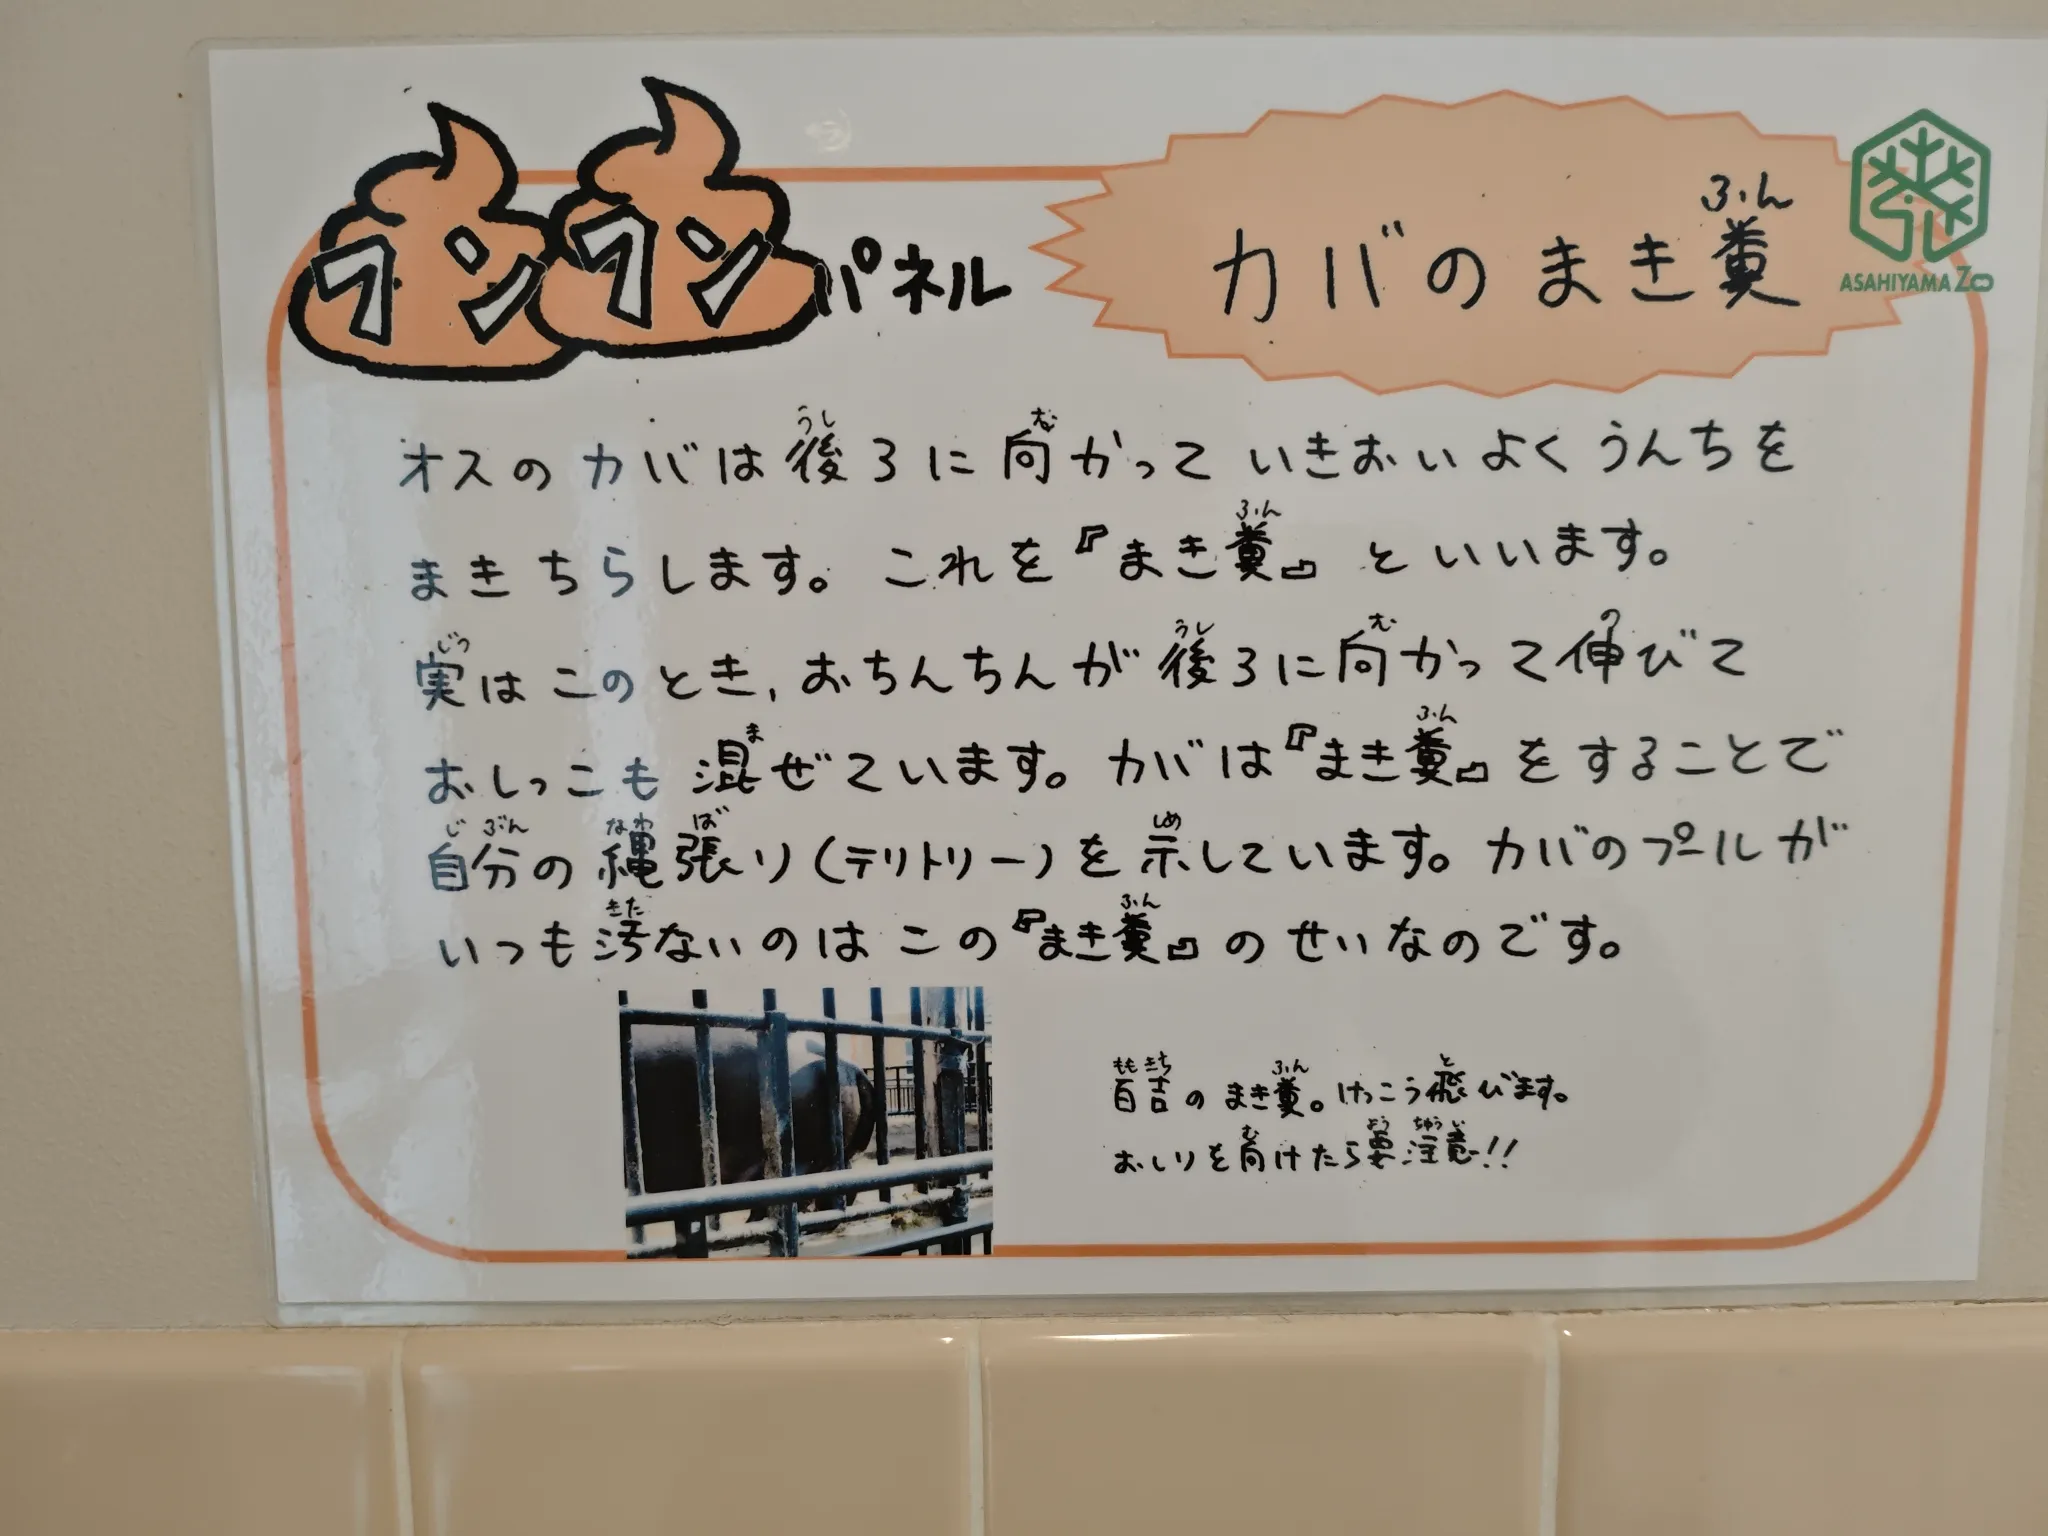 フンフンパネル
カバのまき糞
ふん
ASAHIYAMA ZOO
オスのカバは後ろに向かっていきおいよくうんちを
まきちらします。これを『まき糞』といいます。
実はこのとき、おちんちんが後ろに向かって伸びて
おしっこも混ぜています。カバは『まき糞』をすることで
自分の縄張り(テリトリー)を示しています。カバのプールが
いつも汚ないのはこの『まき糞』のせいなのです。
百吉のまき糞。けっこう飛びます。
おしりを向けたら要注意!!